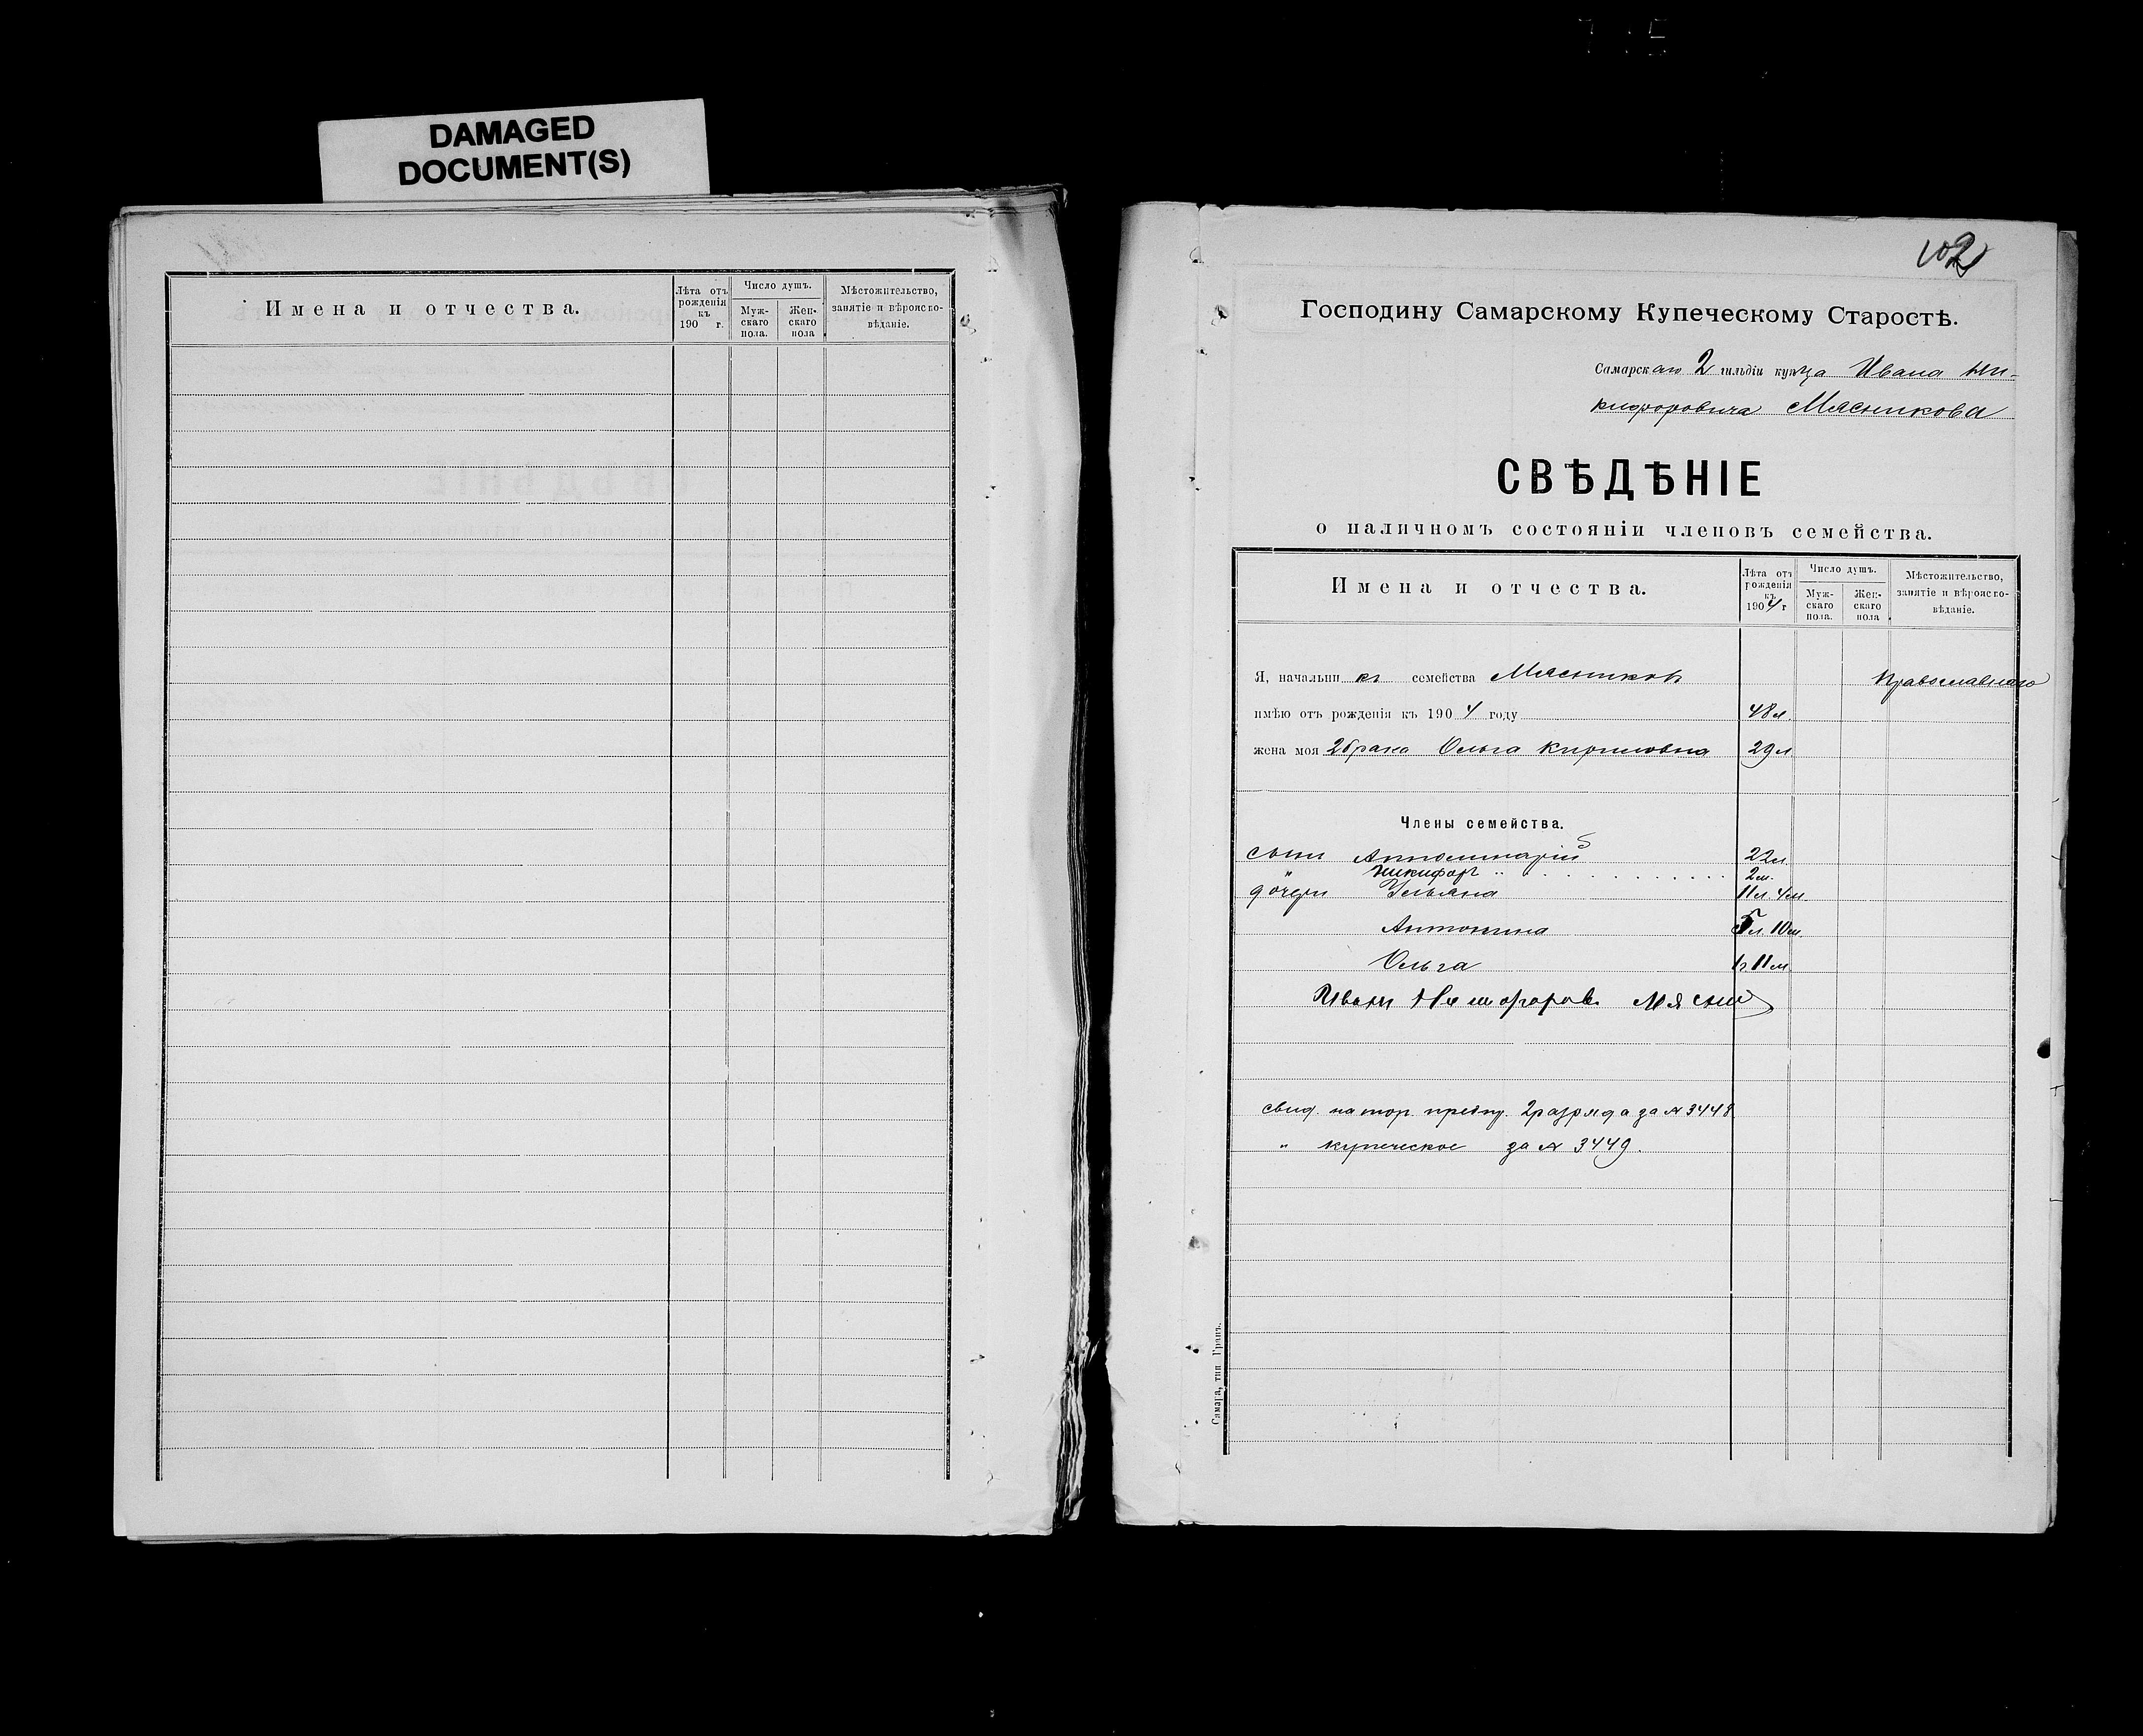 DAMAGED
DOCUMENT(S)
Имена и отчества.
Лѣта отъ рожденія къ 190 г.
Число душъ.
Муж-скаго пола.
Жен-скаго пола
Мѣстожительство, занятіе и вѣроиспо-вѣданіе.
102
Господину Самарскому Купеческому Старостѣ.
Самарскаго 2 гильдіи купца Ивана Ни-
кифоровича Мясникова
СВѢДѢНІЕ
о наличномъ состояніи членовъ семейства.
Имена и отчества.
Лѣта отъ рожденія къ 1904 г
Число душъ.
Муж-скаго пола.
Жен-скаго пола
Мѣстожительство, занятіе и вѣроиспо-вѣданіе.
Я, начальникъ семейства Мясниковъ Православнаго
имѣю отъ рожденія къ 1904 году 48 л.
жена моя 2 брака Ольга Кириловна 29 л
Члены семейства.
сыни Апполинарій 22 л.
" Никифоръ 2 м.
дочери Ульяна 11 л. 4 м.
Антонина 5 л. 10 м.
Ольга 1 г 11 м.
Иванъ Никифоровъ Мясни
свид. на тор. предпр. 2 разряда за № 3448
" купеческое за № 3449.
Самара, тип. Гранъ.